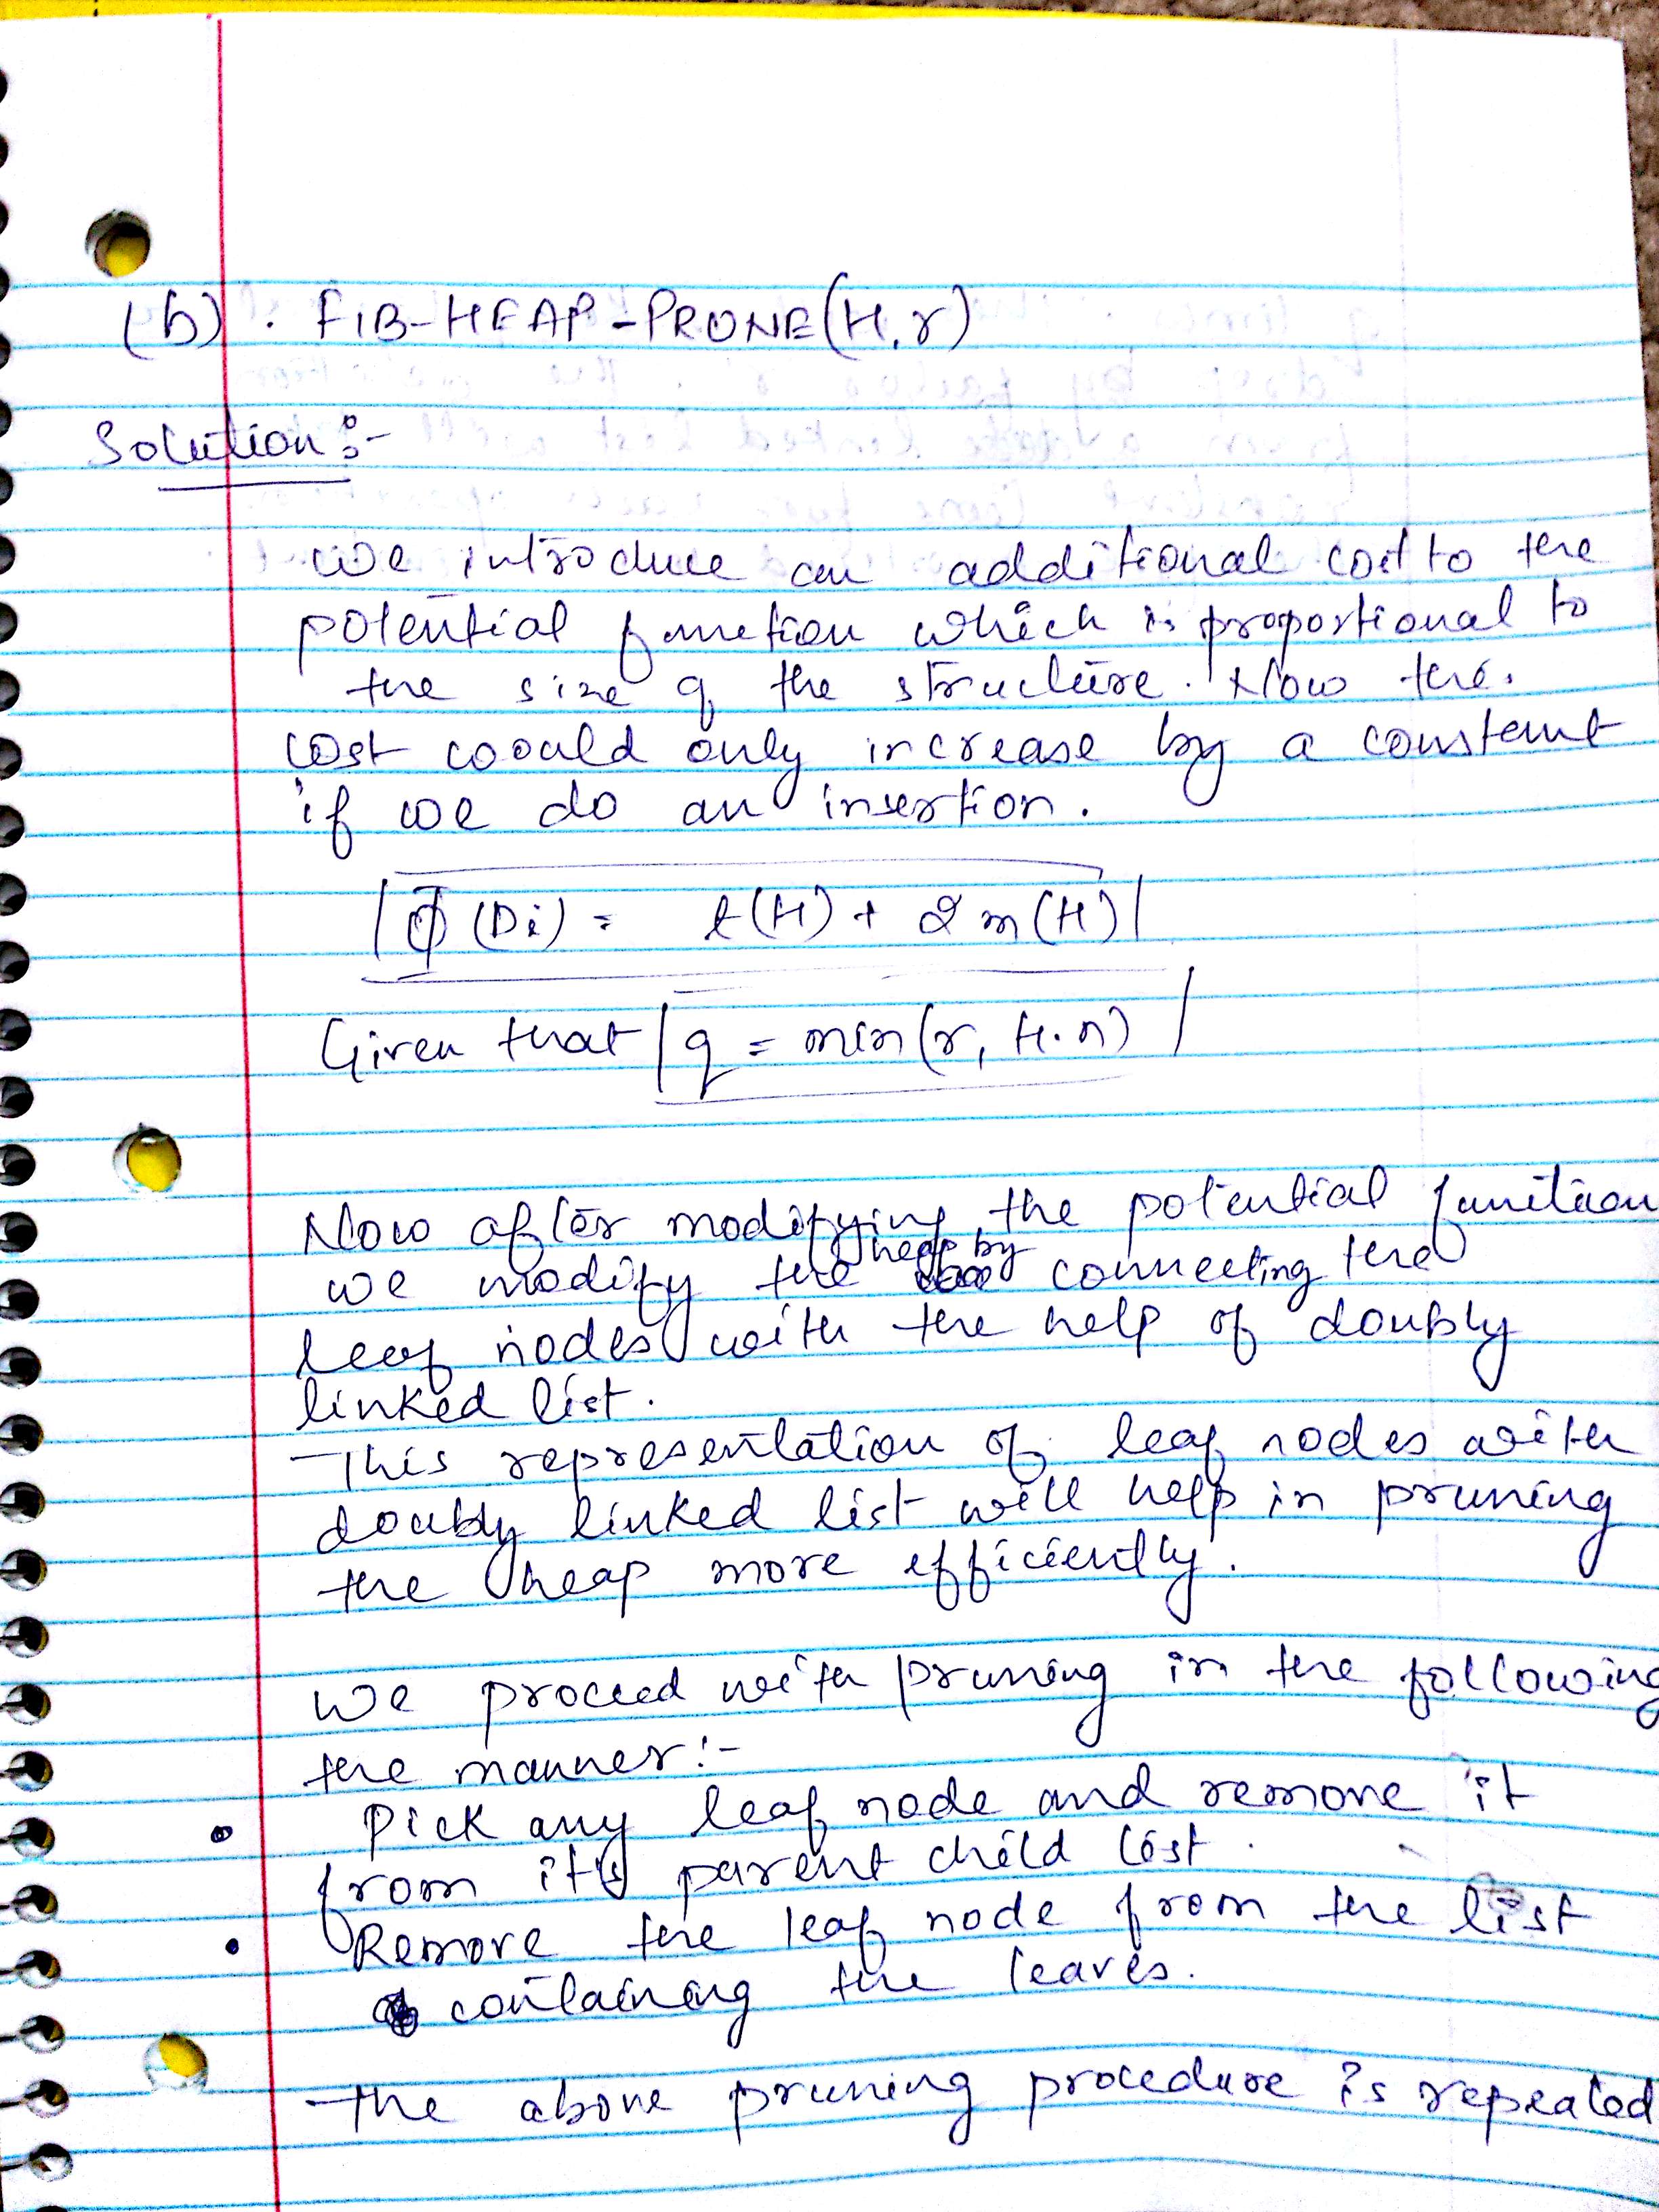 (b). FIB-HEAP-PRONE(H,r)
Solution :-
we introduce an additional cost to the
potential function which is proportional to
the size of the structure. Now the.
cost coould only increase by a constant
if we do an insertion.
Φ(Di) = t(H) + 2m(H)
Given that q = min(r, H.n)
Now after modifying the potential function
we modify the heap by connecting the
leaf nodes with the help of doubly
linked list.
This representation of leaf nodes with
doubly linked list will help in pruning
the heap more efficiently.
we proceed with pruning in the following
the manner:-
• Pick any leaf node and remove it
from its parent child list.
• Remove the leaf node from the list
containing the leaves.
The above pruning procedure is repeated